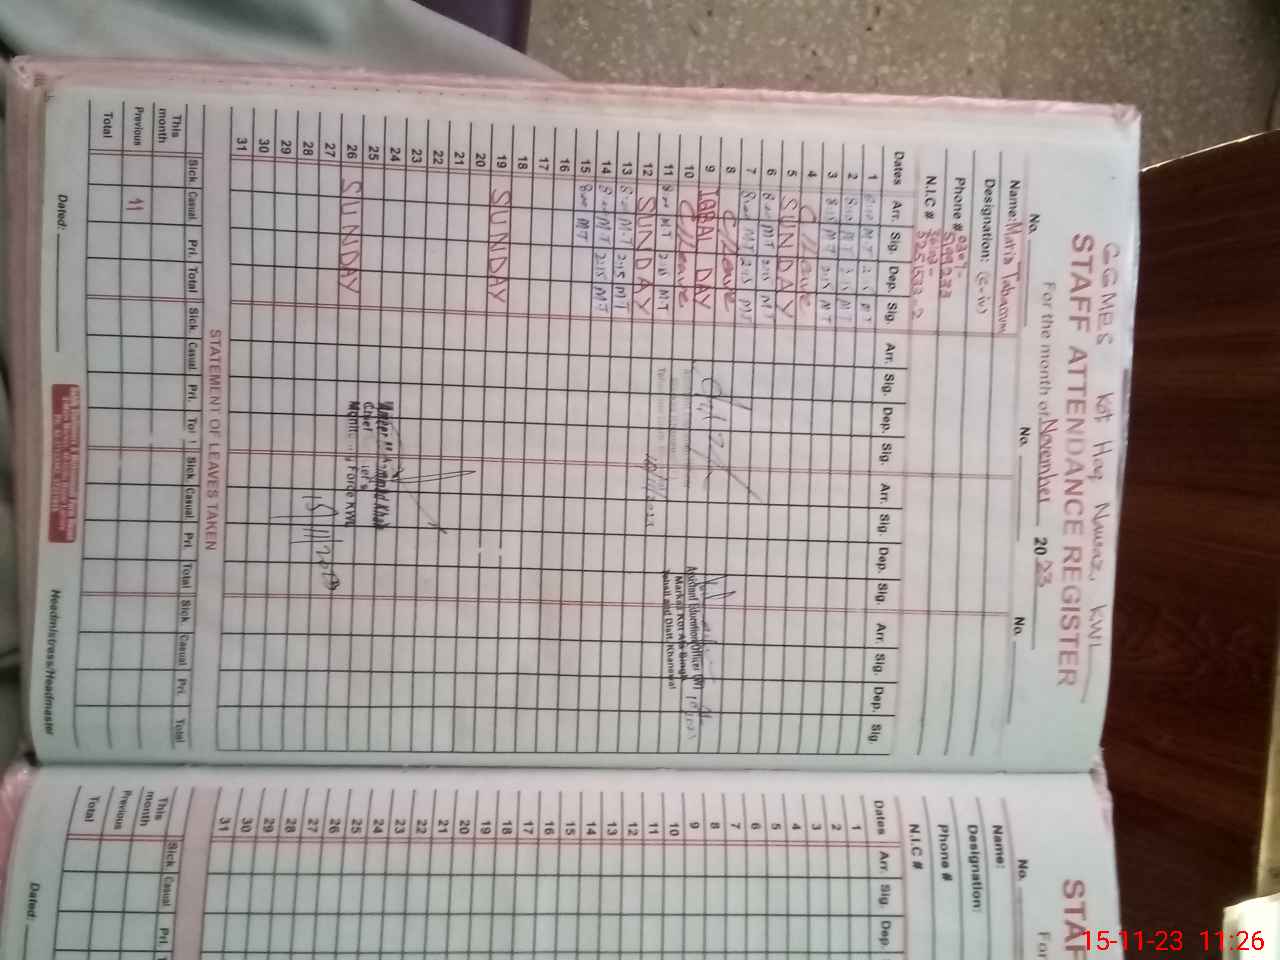 GGMES Kot Haq Nawaz, KWL
STAFF ATTENDANCE REGISTER
For the month of November 2023
No. No. No.
Name: Maria Tabassum
Designation: (C-iv)
Phone #
N.I.C #
Dates Arr. Sig. Dep. Sig. Arr. Sig. Dep. Sig. Arr. Sig. Dep. Sig. Arr. Sig. Dep. Sig.
1 8:00 M.T 2:15 M.T
2 8:00 M.T 2:15 M.T
3 8:15 M.T 2:15 M.T
4 C/Leave
5 SUNDAY
6 8:00 M.T 2:15 M.T
7 8:00 M.T 2:15 M.T
8 C/Leave
9 IQBAL DAY
10 C/Leave
11 8:00 M.T 2:15 M.T
12 SUNDAY
13 8:00 M.T 2:15 M.T
14 8:00 M.T 2:15 M.T
15 8:00 M.T
16
17
18
19 SUNDAY
20
21
22
23
24
25
26 SUNDAY
27
28
29
30
31
Assistant Education Officer (W)
Markaz Kot Ala Singh
Tehsil and Distt. Khanewal
Chief
Force KWL
15/11/2023
STATEMENT OF LEAVES TAKEN
Sick Casual Pri. Total Sick Casual Pri. Sick Casual Pri. Total Sick Casual Pri. Total
This month
Previous 11
Total
Dated: Headmistress/Headmaster
STAF
For
No.
Name:
Designation:
Phone #
N.I.C #
Dates Arr. Sig. Dep.
1
2
3
4
5
6
7
8
9
10
11
12
13
14
15
16
17
18
19
20
21
22
23
24
25
26
27
28
29
30
31
Sick Casual Pri.
This month
Previous
Total
Dated:
15-11-23 11:26